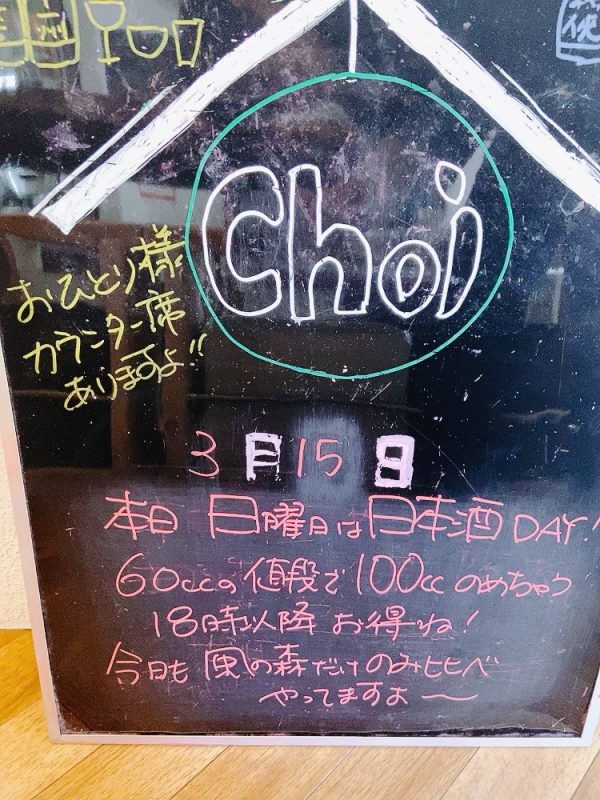 Choi
おひとり様
カウンター席
ありますよ!!
3月15日
本日 日曜日は日本酒DAY!
60ccの値段で100ccのめちゃう
18時以降お得ね!
今日も 風の森だけのみ比べ
やってますよ〜